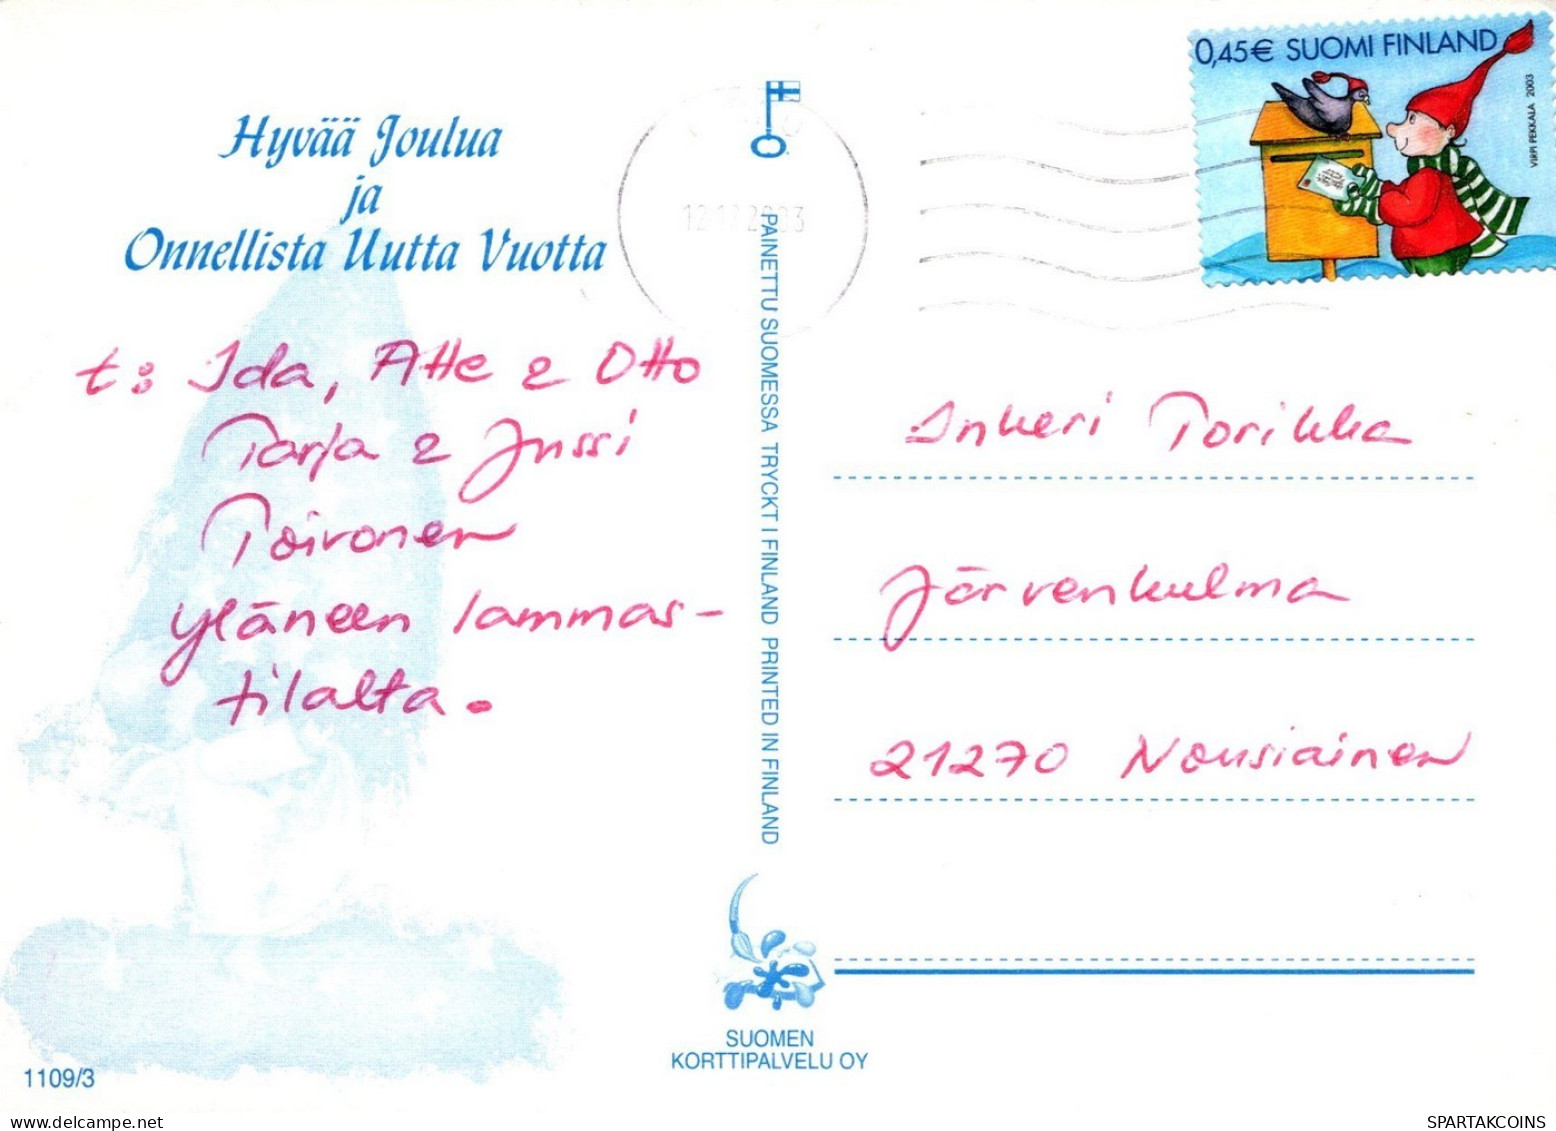 Hyvää Joulua
ja
Onnellista Uutta Vuotta
t: Ida, Atte & Otto
Tarja & Jussi
Toivonen
Yläneen lammas-
tilalta.
1109/3
PAINETTU SUOMESSA TRYCKT I FINLAND PRINTED IN FINLAND
SUOMEN
KORTTIPALVELU OY
0,45€ SUOMI FINLAND
VIRPI PEKKALA 2003
Inkeri Torikka
Järvenkulma
21270 Nousiainen
SPARTAKCOINS.COM